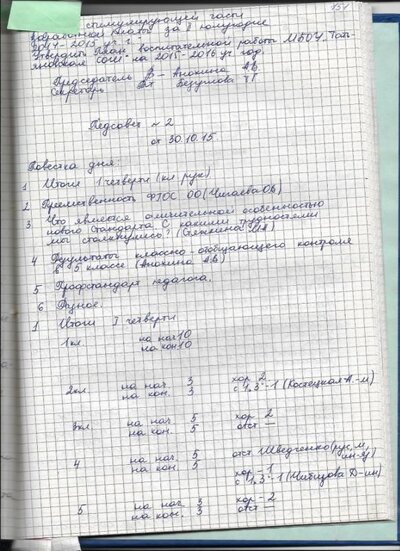 151
стимулирующей части
заработной платы за II полугодие
2014-2015 уч. г.
Утвердить План воспитательной работы МБОУ "Тать-
яновской СОШ" на 2015-2016 уч. год.
Председатель Анохина АВ
Секретарь Безуглова ТГ
Педсовет № 2
от 30.10.15.
Повестка дня:
1 Итоги 1 четверти (кл рук)
2 Преемственность ФГОС ОО (
3 Что является отличительной особенностью
нового стандарта. С какими трудностями
мы столкнулись? (
4 Результаты классно-обобщающего контроля
в 5 классе (Анохина АВ)
5 Профстандарт педагога.
6 Разное.
1 Итоги I четверти
1кл на нач 10
на кон 10
2кл. на нач. 3 хор 2
на кон. 3 с 1 "3" - 1 (Костецкая А.-м)
3кл на нач. 5 хор 2
на кон. 5 отст —
4 на нач. 5 отст Шведченко (рус, м,
на кон. 5 ин-яз)
хор - 1
с 1 "3" - 1 (Чибизова Д-ин)
5 на нач 3 хор - 2
на кон. 3 отст —